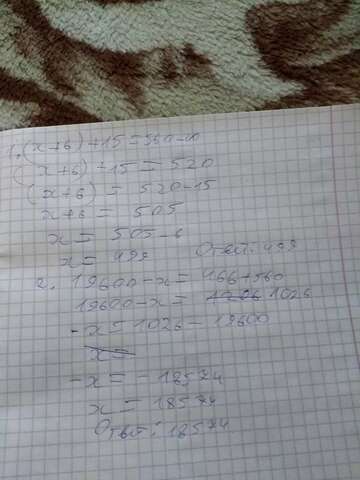 1. (x+6)+15=560-40
(x+6)+15=520
(x+6)= 520-15
x+6= 505
x= 505-6
x= 499 Ответ: 499
2. 19600-x= 466+560
19600-x= 1026
-x=1026-19600
x=
-x=-18574
x=18574
Ответ: 18574